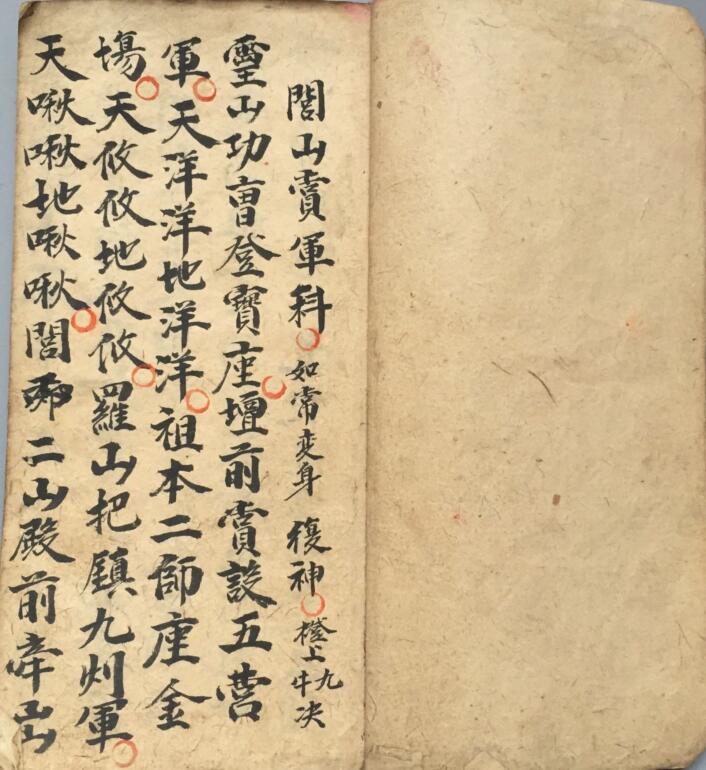 閭山賞軍科○如常变身 復神○橙上九牛决
靈山功曹登寶座○壇前賞設五營
軍○天洋洋地洋洋○祖本二師座金
塲○天攸攸地攸攸○羅山把鎮九州軍○
天啾啾地啾啾○閭二山殿前牽